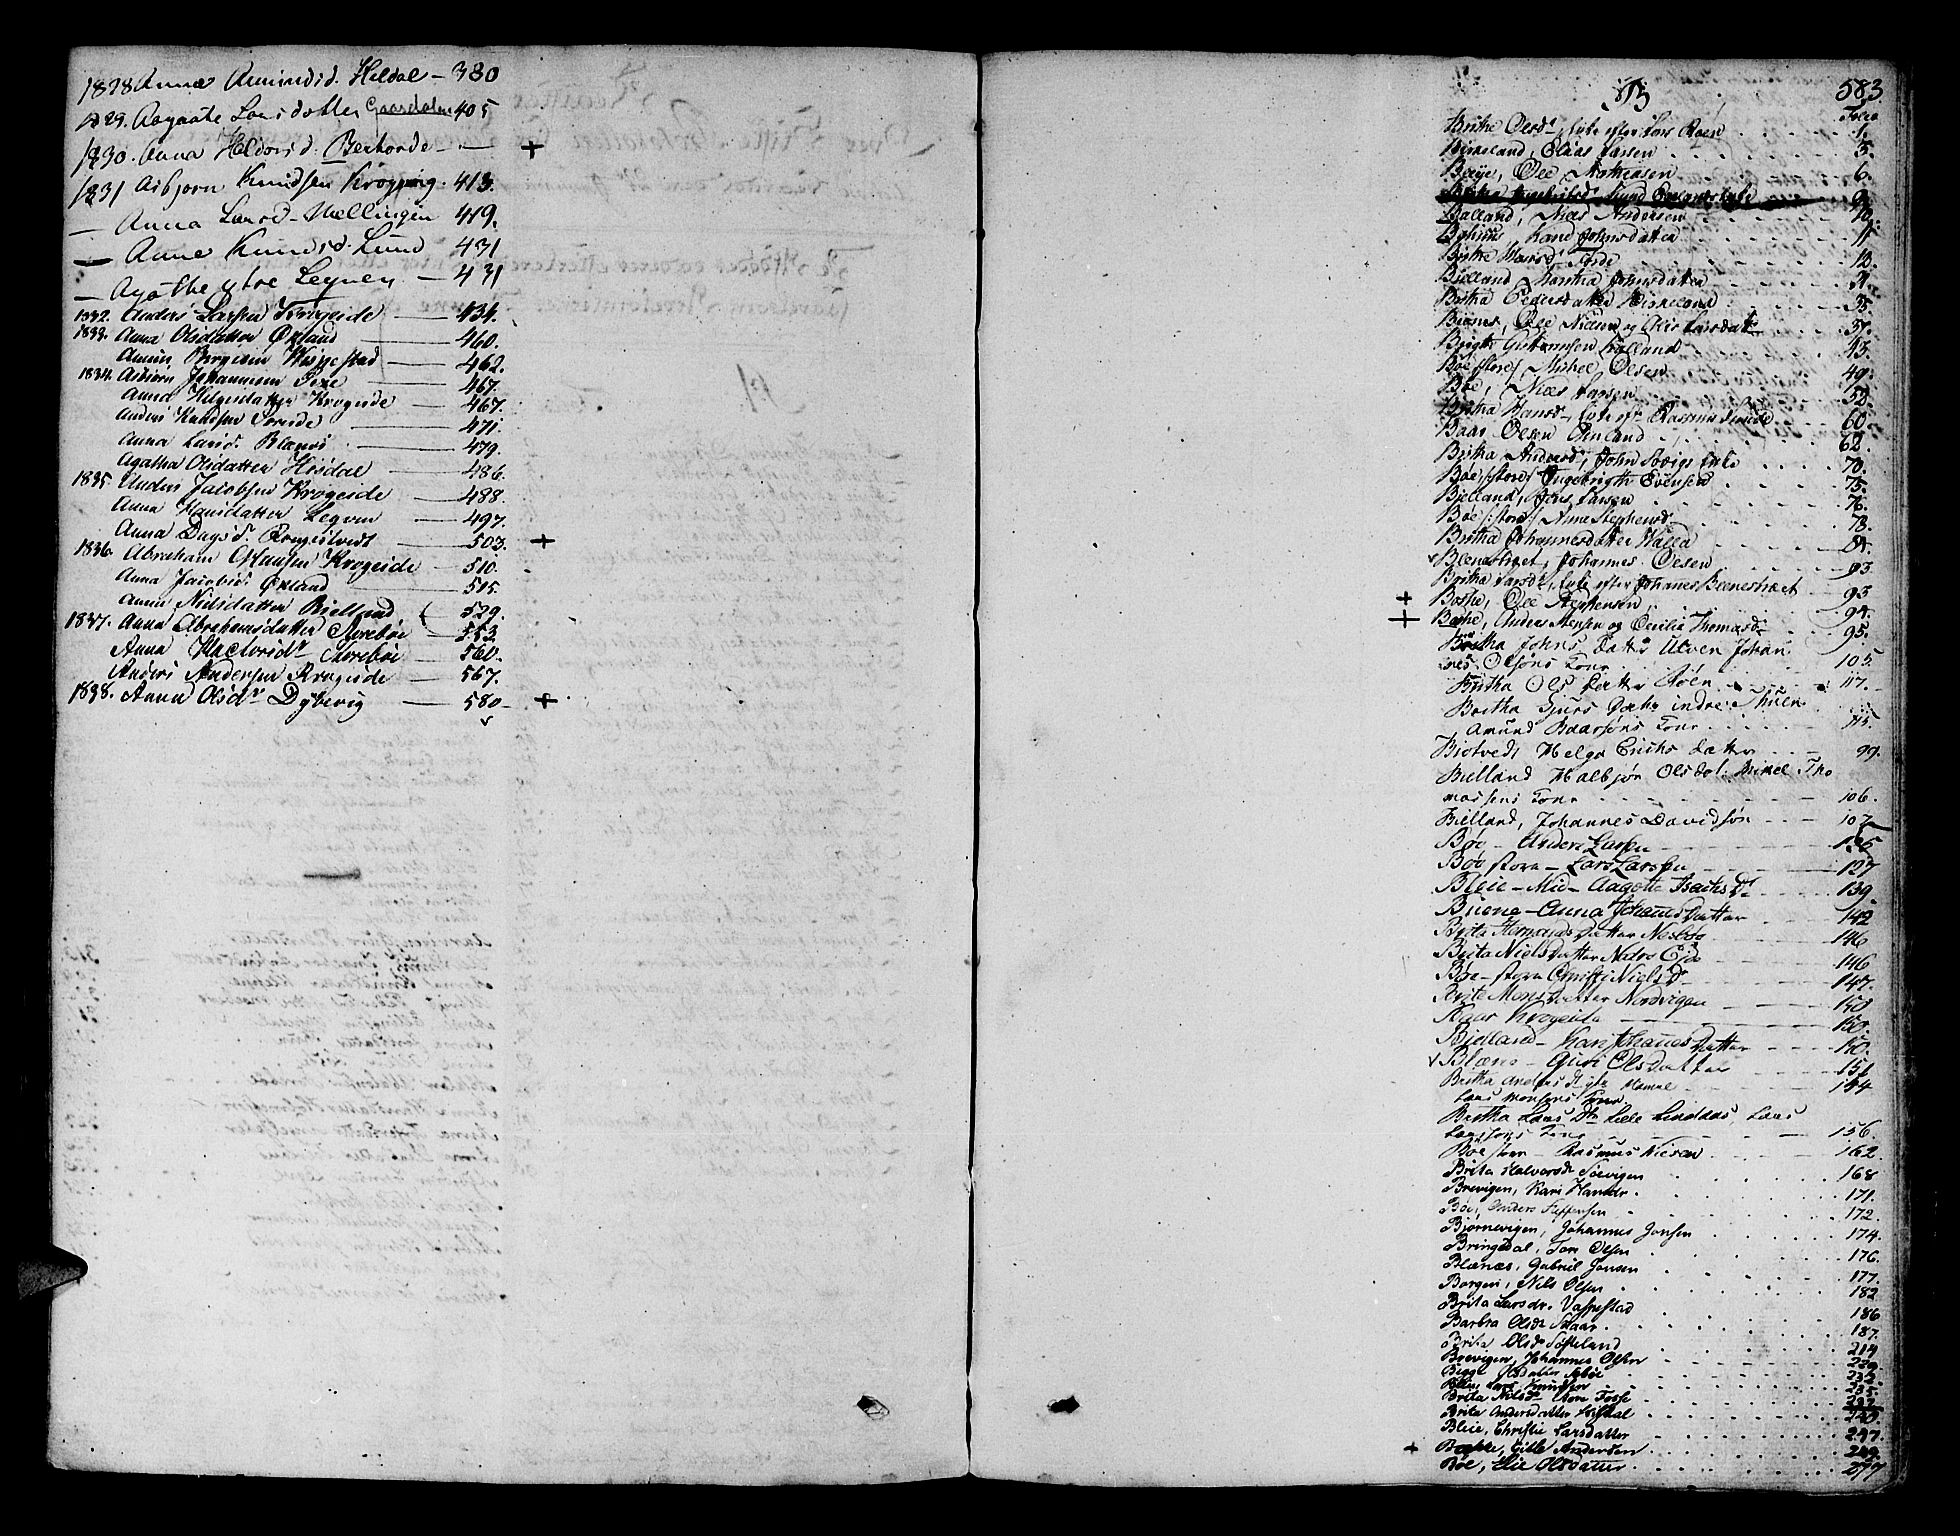 1828 Anna Amundsd. Heldal – 380
1829. Aagaate Larsdatter Gaasdalen 405
1830. Anna Heldorsd. Berhorde – — +
1831 Asbjorn Knudsen Krogeng. 413.
— Anna Larsd – Mellingen 419.
— Anne Knudsd. Lund 431
— Agathe ytre Legven — 431
1832. Anders Larsen Krogeide — 434.
1833. Anna Olsdatter Øxland — 460.
Amun Borgesen Vespestad — 462.
1834. Asbiørn Johannesen Toxe — 467.
Anna Helgesdatter Krogeide — 467.
Anders Knudsen — 471.
Anna Larsd. Blanes — 479.
Agatha Olsdatter Hisdal — 486.
1835. Anders Jacobsen Krogeide — 488.
Anna Hansdatter Legven — 497.
Anna Dagsd. Rongestvedt — 503. +
1836. Abraham Clausen Krogeide — 510.
Anna Jacobsd. Øxland — 515.
Anna Nielsdatter Bielland — 529.
1837. Anna Abrahamsdatter Storebøe — 553.
Anna Hactorsdr Storebøe — 560.
Anders Andersen Krogeide — 567.
1838. Anna Olsdr Dybevig — 580 – +
B 583.
Folio
Brithe Olsdr, Enke efter Lars Røen 1.
Birkeland, Elias Larsen 3.
Børge, Ole Mathiasen 6.
Balland, Niels Andersen 10.
Kari Johnsdatter 11.
Brithe Hansdr Førde 12.
Bielland, Martha Johnsdatter 31.
Britha Pedersdatter Birkeland 35.
Biønes, Ole Nielsen og Larsdatter 37.
Brigte Guttormsen Kalland 43.
Bøe store/ Michel Olsen 49.
Bøe, Niels Larsen 52.
Britha Hansdr Enke eftr Rasmus 60.
Baar Olsen Qvinland 62.
Britha Andersdr, John Enke 70.
Bøe /:store:/ Ingebrigth Evensen 75.
Bielland, Jens Larsen 76.
Bøe /:store:/ Anne Stephensd. 78.
Britha Johannesdatter Walla
Blenestræet, Johannes Olsen 93.
Britha Larsdr, Enke efter Johanes Blenestræet 93
+ Bothe, Ole Stephensen 94.
+ Bothe, Anders Stensen og Cecilie Thomasdr 95.
Britha Johns Datter Alven Johan
nes Olsøns Kone 105.
Britha Ols Datter Røen 117.
Britha Siurs Datter indre Thuen
Amund Baarsøns Kone 115.
Biotvedt, Helga Erichs Datter 99.
Bielland Halbjør Olsdr: Mikel Tho
massens Kone 106.
Bielland, Johannes Davidsøn 107
Bøe – Anders Larsen 125
Bøe store – Lars Larsen 127
Bleie – Mid – Aagotte Isachsdr 139.
Buene – Anna Johannesdatter 142
Brita Hermansdatter Nesbøe 146
Brita Nielsdatter Nedre Eide 146
Bøe – store Christi Nielsdr 147.
Brite Monsdatter Nordvigen 150
Baar Krogeide 150.
Bielland – Kari Johannesdatter 150.
Blæns – Guri Olsdatter 151
Britha Anders dtr Hamre
Lars Monsens Kone 154
Britha Lars Dtr Lille Lindaas, Lars
Larsens Kone 156.
Bøe store – Rasmus Nielsen 162.
Brita Halvorsdr Søevigen 168
Brevigen, Kari Hansdr. 171.
Bøe, Anders Steffensen 172.
Bjørnevigen, Johannes Jansen 174
Bringedal, Tore Olsen 176.
Blænæs, Gabriel Jonsen 177.
Borgen, Nils Olsen 182
Brita Larsdr. Vaspestad 186
Barbra Olsdr Skaar 187.
Brita Olsdr Søfteland 214
Brevigen, Johannes Olsen 229.
Bigge Olsdatter 232.
Lars Knudsen 235.
Brita Nilsdr Store Fosse 237.
Brita Andersdatter 240.
Bleie, Christie Larsdatter 247.
+ Bakke, Gitle Andersen 249.
Bøe, Elie Olsdatter 277